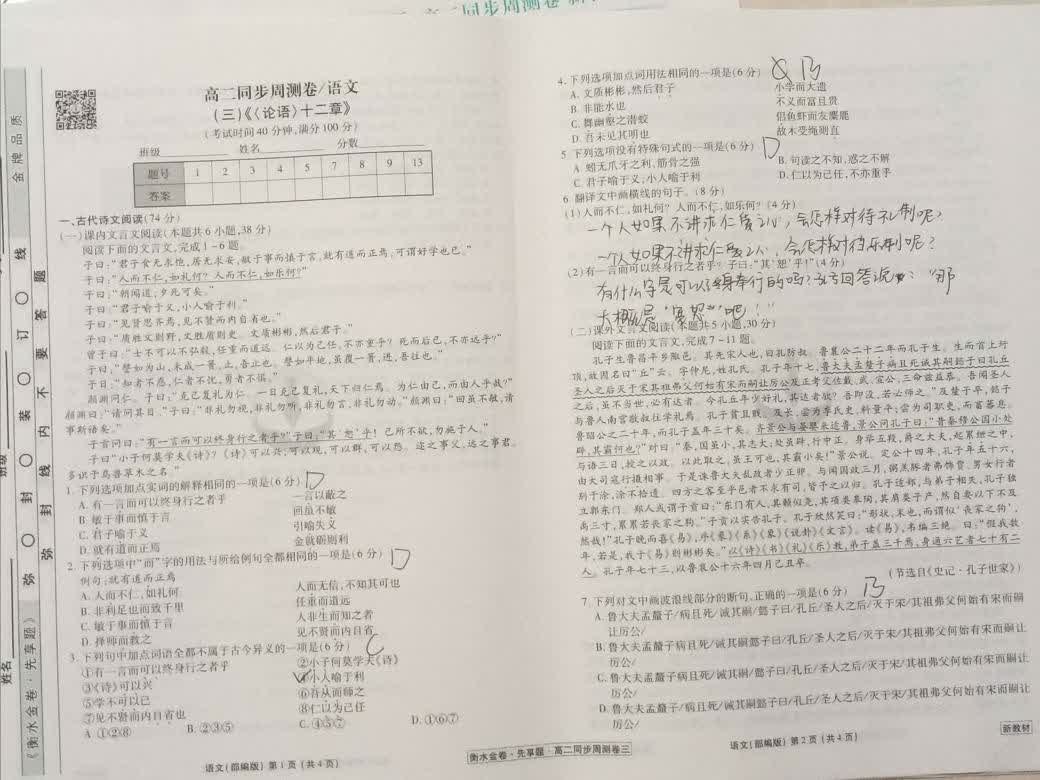 高二同步周测卷/语文
(三)《〈论语〉十二章》
(考试时间40分钟,满分100分)
班级 姓名 分数
题号 1 2 3 4 5 7 8 9 13
答案
一、古代诗文阅读(74分)
(一)课内文言文阅读(本题共6小题,38分)
阅读下面的文言文,完成1~6题。
子曰:“君子食无求饱,居无求安,敏于事而慎于言,就有道而正焉,可谓好学也已。”
子曰:“人而不仁,如礼何?人而不仁,如乐何?”
子曰:“朝闻道,夕死可矣。”
子曰:“君子喻于义,小人喻于利。”
子曰:“见贤思齐焉,见不贤而内自省也。”
子曰:“质胜文则野,文胜质则史。文质彬彬,然后君子。”
曾子曰:“士不可以不弘毅,任重而道远。仁以为己任,不亦重乎?死而后已,不亦远乎?”
子曰:“譬如为山,未成一篑,止,吾止也。譬如平地,虽覆一篑,进,吾往也。”
子曰:“知者不惑,仁者不忧,勇者不惧。”
颜渊问仁。子曰:“克己复礼为仁。一日克己复礼,天下归仁焉。为仁由己,而由人乎哉?”
颜渊曰:“请问其目。”子曰:“非礼勿视,非礼勿听,非礼勿言,非礼勿动。”颜渊曰:“回虽不敏,请
事斯语矣。”
子贡问曰:“有一言而可以终身行之者乎?”子曰:“其‘恕’乎!己所不欲,勿施于人。”
子曰:“小子何莫学夫《诗》?《诗》可以兴,可以观,可以群,可以怨。迩之事父,远之事君。
多识于鸟兽草木之名。”
1. 下列选项加点实词的解释相同的一项是(6分) D
A. 有一言而可以终身行之者乎 一言以蔽之
B. 敏于事而慎于言 回虽不敏
C. 君子喻于义 引喻失义
D. 就有道而正焉 金就砺则利
2. 下列选项中“而”字的用法与所给例句全都相同的一项是(6分) D
例句:就有道而正焉
A. 人而不仁,如礼何 人而无信,不知其可也
B. 非利足也而致千里 任重而道远
C. 敏于事而慎于言 人非生而知之者
D. 择师而教之 见不贤而内自省
3. 下列句中加点词语全都不属于古今异义的一项是(6分) C
①有一言而可以终身行之者乎 ②小子何莫学夫《诗》
③《诗》可以兴 ④小人喻于利
⑤学不可以已 ⑥吾从而师之
⑦见不贤而内自省也 ⑧仁以为己任
A. ①②⑧ B. ②③⑤ C. ④⑤⑦ D. ①⑥⑦
语文(部编版) 第1页(共4页)
4. 下列选项加点词用法相同的一项是(6分) B
A. 文质彬彬,然后君子 小学而大遗
B. 非能水也 不义而富且贵
C. 舞幽壑之潜蛟 侣鱼虾而友麋鹿
D. 吾未见其明也 故木受绳则直
5. 下列选项没有特殊句式的一项是(6分) D
A. 蚓无爪牙之利,筋骨之强 B. 句读之不知,惑之不解
C. 君子喻于义,小人喻于利 D. 仁以为己任,不亦重乎
6. 翻译文中画横线的句子。(8分)
(1)人而不仁,如礼何?人而不仁,如乐何?(4分)
一个人如果不讲求仁爱之心,会怎样对待礼制呢?
一个人如果不讲求仁爱之心,会怎样对待乐制呢?
(2)有一言而可以终身行之者乎?子曰:“其‘恕’乎!”(4分)
有什么字是可以终身奉行的吗?孔子回答说:“那
大概就是‘宽恕’吧!”
(二)课外文言文阅读(本题共5小题,30分)
阅读下面的文言文,完成7~11题。
孔子生鲁昌平乡陬邑。其先宋人也,曰孔防叔。鲁襄公二十二年而孔子生。生而首上圩
顶,故因名曰“丘”云。字仲尼,姓孔氏。孔子年十七,鲁大夫孟釐子病且死诫其嗣懿子曰孔丘
圣人之后灭于宋其祖弗父何始有宋而嗣让厉公及正考父佐戴、武、宣公,三命兹益恭。吾闻圣人
之后,虽不当世,必有达者。今孔丘年少好礼,其达者欤?吾即没,若必师之。”及釐子卒,懿子
与鲁人南宫敬叔往学礼焉。孔子贫且贱。及长,尝为季氏史,料量平;尝为司职吏,而畜蕃息。
鲁昭公之二十年,而孔子盖年三十矣。齐景公与晏婴来适鲁,景公问孔子曰:“昔秦穆公国小处
辟,其霸何也?”对曰:“秦,国虽小,其志大;处虽辟,行中正。身举五羖,爵之大夫,起累绁之中,
与语三日,授之以政。以此取之,虽王可也,其霸小矣!”景公说。定公十四年,孔子年五十六,
由大司寇行摄相事。于是诛鲁大夫乱政者少正卯。与闻国政三月,粥羔豚者弗饰贾,男女行者
别于涂,涂不拾遗。四方之客至乎邑者不求有司,皆予之以归。孔子适郑,与弟子相失,孔子独
立郭东门。郑人或谓子贡曰:“东门有人,其颡似尧,其项类皋陶,其肩类子产,然自要以下不及
禹三寸,累累若丧家之狗。”子贡以实告孔子。孔子欣然笑曰:“形状,末也,而谓似‘丧家之狗’,
然哉!”孔子晚而喜《易》,序《彖》《系》《象》《说卦》《文言》。读《易》,韦编三绝。曰:“假我数
年,若是,我于《易》则彬彬矣。”以《诗》《书》《礼》《乐》教,弟子盖三千焉,身通六艺者七十有二
人。孔子年七十三,以鲁哀公十六年四月己丑卒。
(节选自《史记·孔子世家》)
7. 下列对文中画波浪线部分的断句,正确的一项是(6分) B
A. 鲁大夫孟釐子/病且死/诫其嗣/懿子曰/孔丘/圣人之后/灭于宋/其祖弗父何始有宋而嗣
让厉公/
B. 鲁大夫孟釐子病且死/诫其嗣懿子曰/孔丘/圣人之后/灭于宋/其祖弗父何始有宋而嗣让
厉公/
C. 鲁大夫孟釐子病且死/诫其嗣/懿子曰/孔丘/圣人之后/灭于宋/其祖弗父何始有宋而嗣让
厉公/
D. 鲁大夫孟釐子/病且死/诫其嗣懿子曰/孔丘/圣人之后/灭于宋/其祖弗父何始有宋而嗣让
厉公/
新教材
衡水金卷·先享题·高二同步周测卷三
语文(部编版) 第2页(共4页)
金牌品质
弥 封 线 内 不 要 答 题
弥 封 装 订 线
《衡水金卷·先享题》
班级
姓名